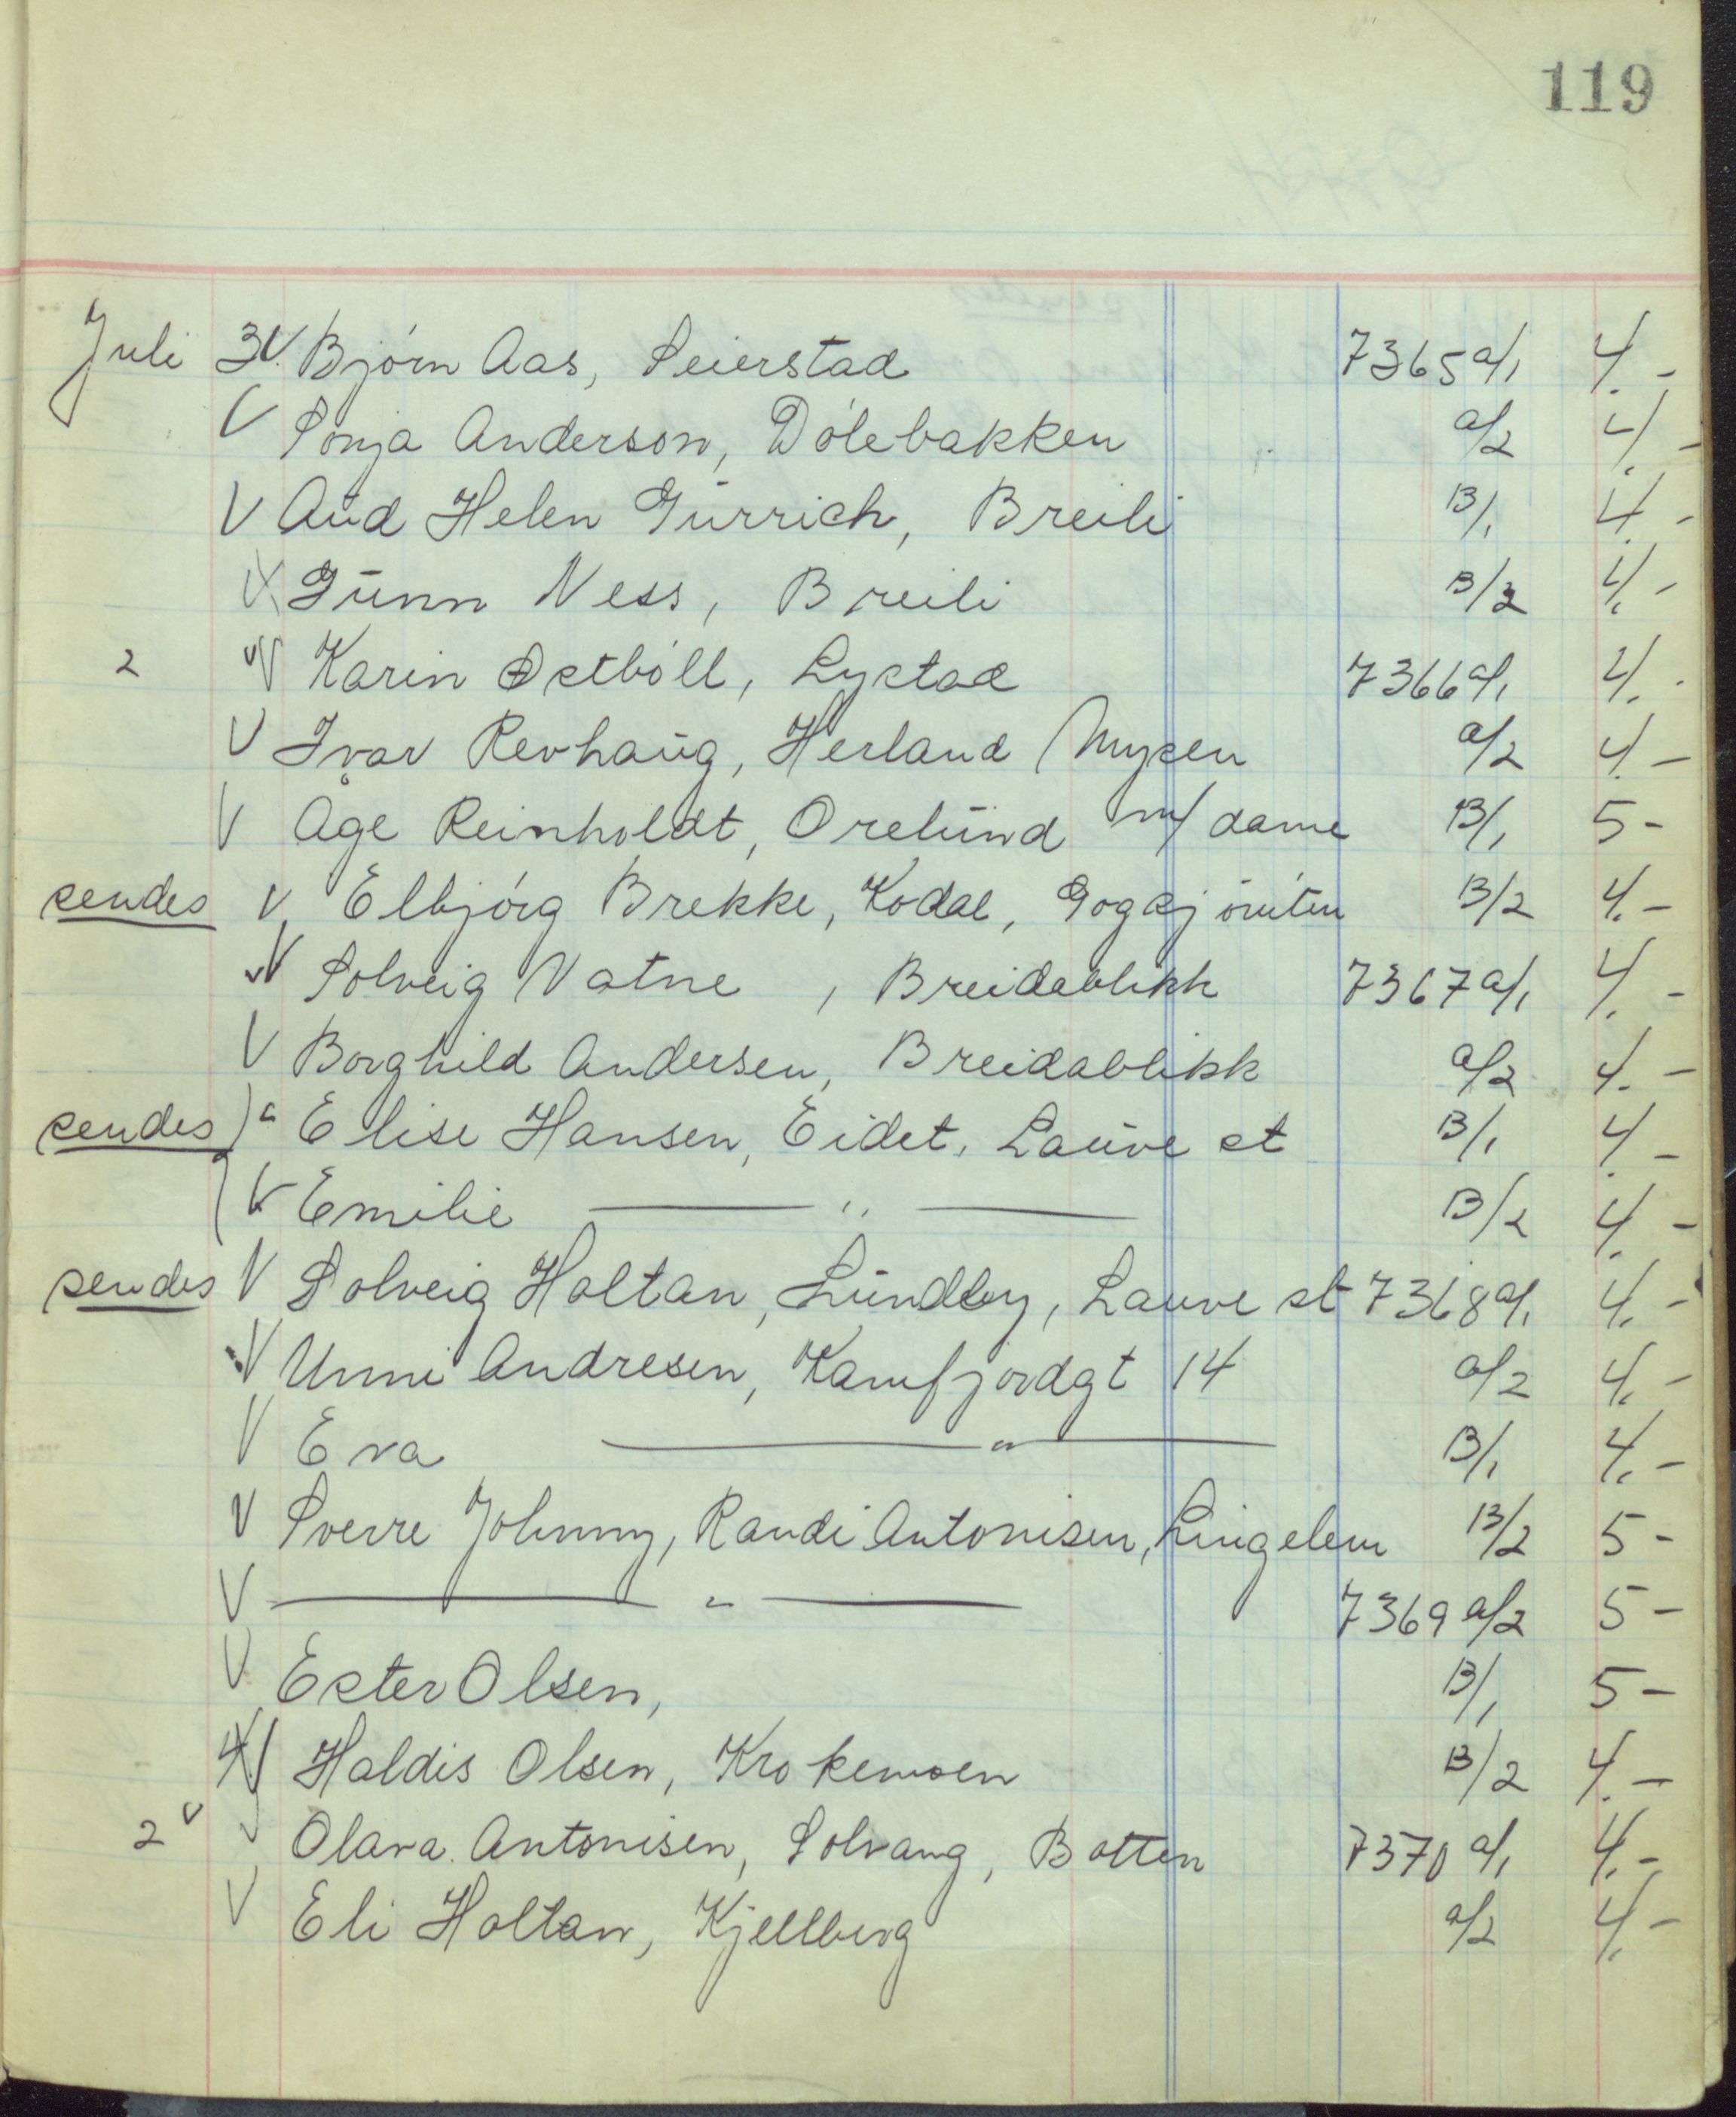 119
Juli 3. V Bjørn Aas, Seierstad 7365 a/1 4.-
V Sonja Anderson, Dølebakken a/2 4.-
V Aud Helen Gürrich, Breili B/1 4.-
V Gunn Ness, Breili B/2 4.-
2 V Karin Østbøll, Lystad 7366 a/1 4.-
V Ivar Revhaug, Herland Mysen a/2 4.-
V Åge Reinholdt, Orelund m/ dame B/1 5-
sendes V Elbjørg Brekke, Kodal, B/2 4.-
V Solveig Vatne, Breidablikk 7367 a/1 4.-
V Borghild Andersen, Breidablikk a/2 4.-
sendes Elise Hansen, Eidet, Lauve st B/1 4.-
V Emilie — " — B/2 4.-
sendes V Solveig Holtan, Lundby, Lauve st 7368 a/1 4.-
V Unni Andresen, Kamfjordgt 14 a/2 4.-
V Eva — " — B/1 4.-
V Sverre Johnny, Randi Antonisen, Lingelem B/2 5-
V — " — 7369 a/2 5-
V Ester Olsen, B/1 5-
V Haldis Olsen, Krokemoen B/2 4.-
2 V Olava Antonisen, Solvang, Botten 7370 a/1 4.-
V Eli Holtan, Kjellberg a/2 4.-